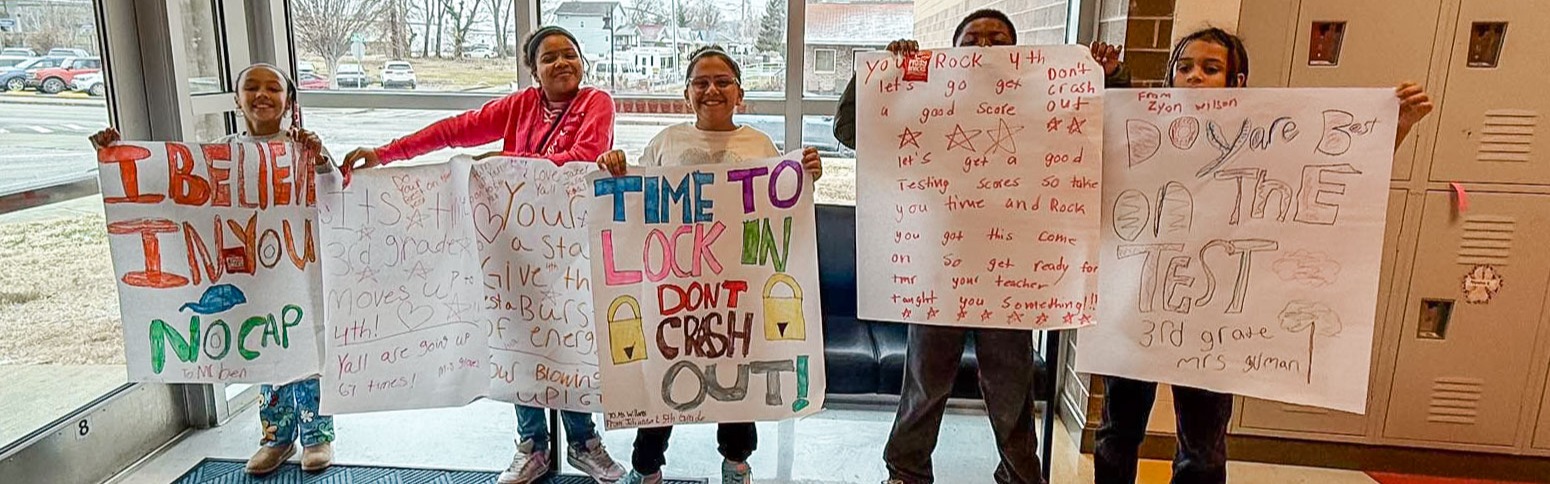 I BELIEV
IN YOU
NO CAP
To Mr ben
It's
3rd grade
Moves up to
4th!
Yall are goin up
67 times!
Love
Yall
Your
a sta
Give th
sta Burs
of energ
Our Blowing
UP! 67
TIME TO
LOCK IN
DONT
CRASH
OUT!
From Julianna L 5th Grade
You Rock 4th
let's go get Don't
crash
a good score out
let's get a good
Testing scores so take
you time and Rock
you got this come
on so get ready for
tmr your teacher
taught you something!!!
From
Zyon Wilson
DO Yare Best
on The
TEST
3rd grade
mrs guman
8